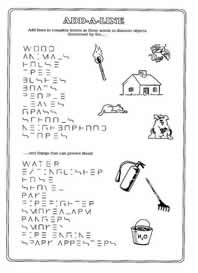 ADD-A-LINE
Add lines to complete letters in these words to discover objects
threatened by fire.....
WOOD
ANIMALS
HOUSE
TREE
BUSHES
BOATS
PEOPLE
LEAVES
GRASS
SCHOOLS
NEIGHBORHOOD
STORES
.....and things that can prevent
WATER
EXTINGUISHER
HOSE
SHOVEL
RAKE
FIREFIGHTER
SMOKE ALARM
RANGERS
SMOKEY
FIRE ENGINE
SPARK ARRESTERS
H₂O